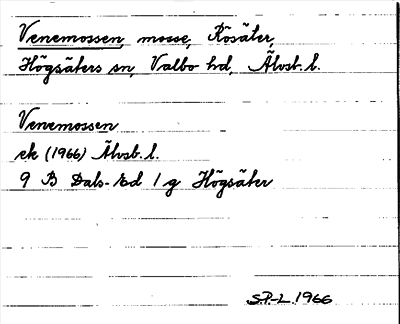 Venemossen, mosse, Rösäter,
Högsäters sn, Valbo hd, Älvsb. l.
Venemossen
ek (1966) Älvsb. l.
9 B Dals-Ed 1 g Högsäter
SP-L 1966